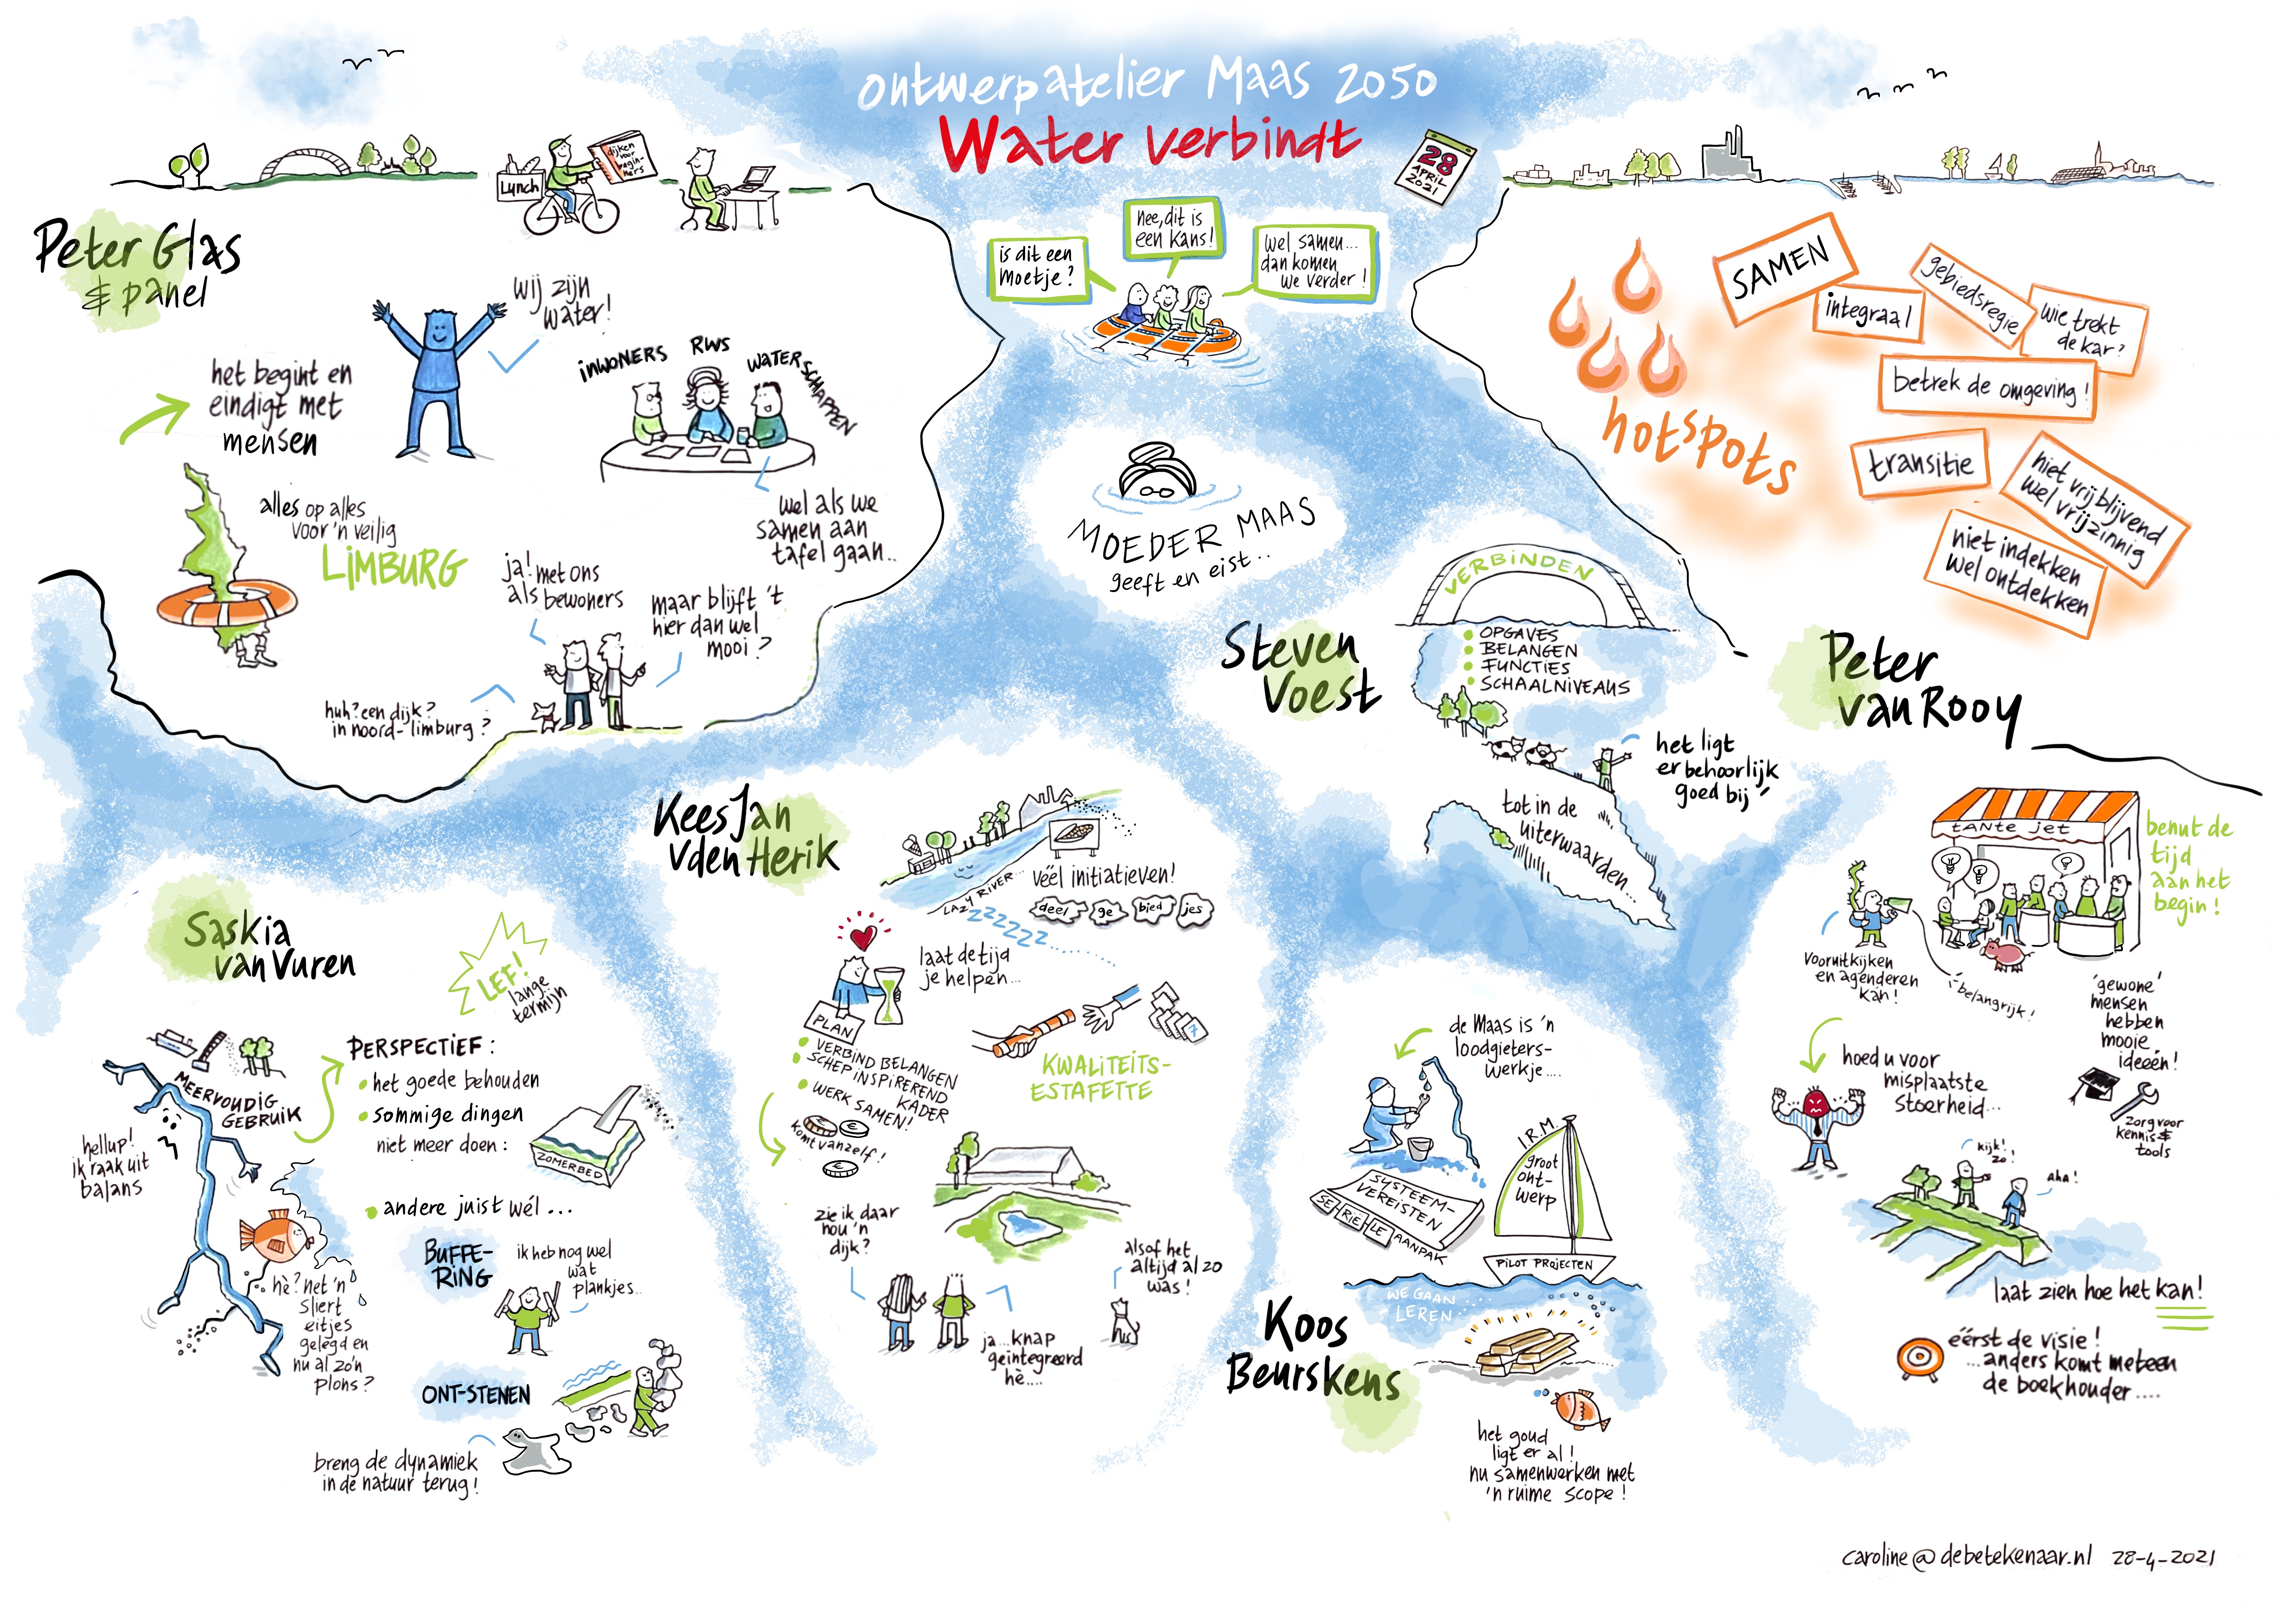 ontwerpatelier Maas 2050
Water verbindt
28
APRIL
2021
Lunch
dijken
voor
begin-
ners
Peter Glas
& panel
wij zijn
water!
het begint en
eindigt met
mensen
inwoners
RWS
waterschappen
wel als we
samen aan
tafel gaan..
alles op alles
voor 'n veilig
LIMBURG
ja! met ons
als bewoners
maar blijft 't
hier dan wel
mooi?
huh? een dijk?
in noord-limburg?
is dit een
moetje?
nee, dit is
een kans!
wel samen...
dan komen
we verder!
MOEDER MAAS
geeft en eist..
hotspots
SAMEN
integraal
gebiedsregie
wie trekt
de kar?
betrek de omgeving!
transitie
niet vrijblijvend
wel vrijzinnig
niet indekken
wel ontdekken
Steven
Voest
VERBINDEN
OPGAVES
BELANGEN
FUNCTIES
SCHAALNIVEAUS
het ligt
er behoorlijk
goed bij
tot in de
uiterwaarden...
Peter
van Rooy
tante jet
benut de
tijd
aan het
begin!
vooruitkijken
en agenderen
kan!
belangrijk!
'gewone'
mensen
hebben
mooie
ideeën!
hoed u voor
misplaatste
stoerheid...
zorg voor
kennis &
tools
kijk!
zo!
aha!
laat zien hoe het kan!
éérst de visie!
...anders komt meteen
de boekhouder....
KeesJan
vden Herik
LAZY RIVER...
zzzzzzz......
véél initiatieven!
deel ge bied jes
laat de tijd
je helpen...
PLAN
VERBIND BELANGEN
SCHEP INSPIREREND
KADER
WERK SAMEN!
komt vanzelf!
7
KWALITEITS-
ESTAFETTE
zie ik daar
nou 'n
dijk?
ja...knap
geïntegreerd
hè....
alsof het
altijd al zo
was!
Saskia
van Vuren
LEF!
lange
termijn
MEERVOUDIG
GEBRUIK
hellup!
ik raak uit
balans
PERSPECTIEF:
het goede behouden
sommige dingen
niet meer doen:
ZOMERBED
andere juist wél...
BUFFE-
RING
ik heb nog wel
wat
plankjes..
hè? net 'n
sliert
eitjes
gelegd en
nu al zo'n
plons?
ONT-STENEN
breng de dynamiek
in de natuur terug!
Koos
Beurskens
de Maas is 'n
loodgieters-
werkje....
SYSTEEM-
VEREISTEN
SE RIË LE AANPAK
I.R.M.
groot
ont-
werp
PILOT PROJECTEN
WE GAAN
LEREN
het goud
ligt er al!
nu samenwerken met
'n ruime scope!
caroline@debetekenaar.nl 28-4-2021